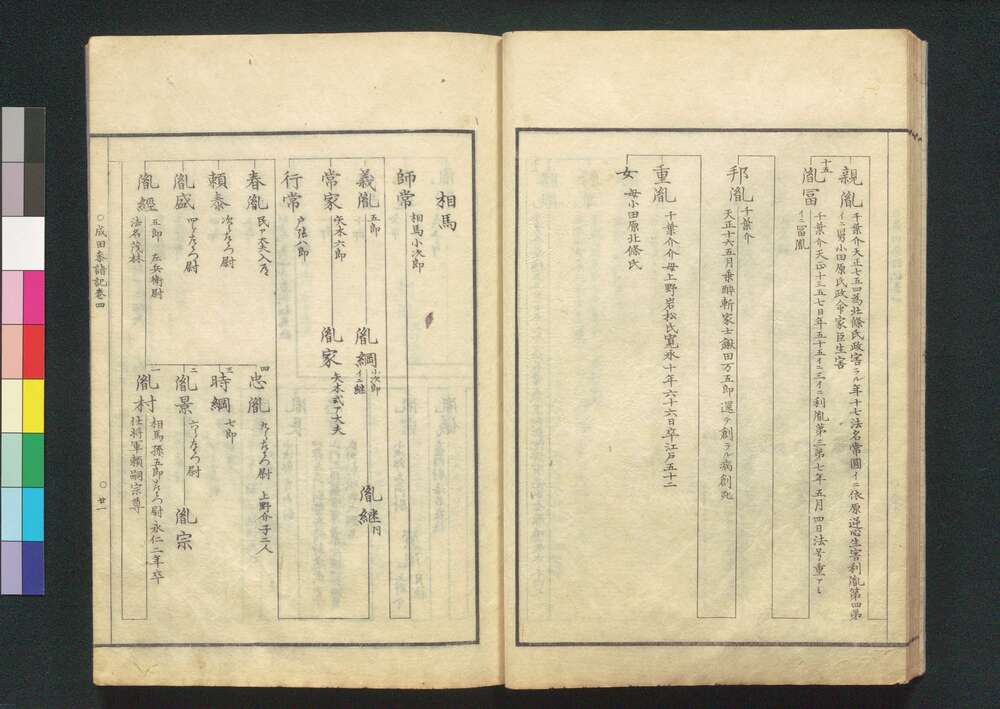 親胤
千葉介天正七五四為北條氏政害ラル年十七法名常圓イニ依原逆心生害利胤第四弟
イニ男小田原氏政命家臣生害
十五
胤冨
千葉介天正十三五七日年五十五イニ三イニ利胤第三弟七年五月四日法号重アヽ
イニ冨胤
邦胤
千葉介
天正十六五月乗酔斬家士鍬田万五郎還テ創ラル病創死
重胤
千葉介母上野岩松氏寛永十年六十六日卒江戸五十二
女
母小田原北條氏
相馬
師常
相馬小次郎
義胤
五郎
胤綱
小次郎
イニ継
胤継
常家
矢木六郎
胤家
矢木式ア大夫
行常
戸張八郎
春胤
民ア大夫入道
頼泰
尉
胤盛
尉
胤經
五郎 左兵衛尉
法名茂林
四
忠胤
尉 上野介子二人
三
時綱
七郎
二
胤景
尉
胤宗
一
胤村
相馬孫五郎 尉永仁二年卒
仕将軍頼嗣宗尊
○成田参諸記巻四
○廿一